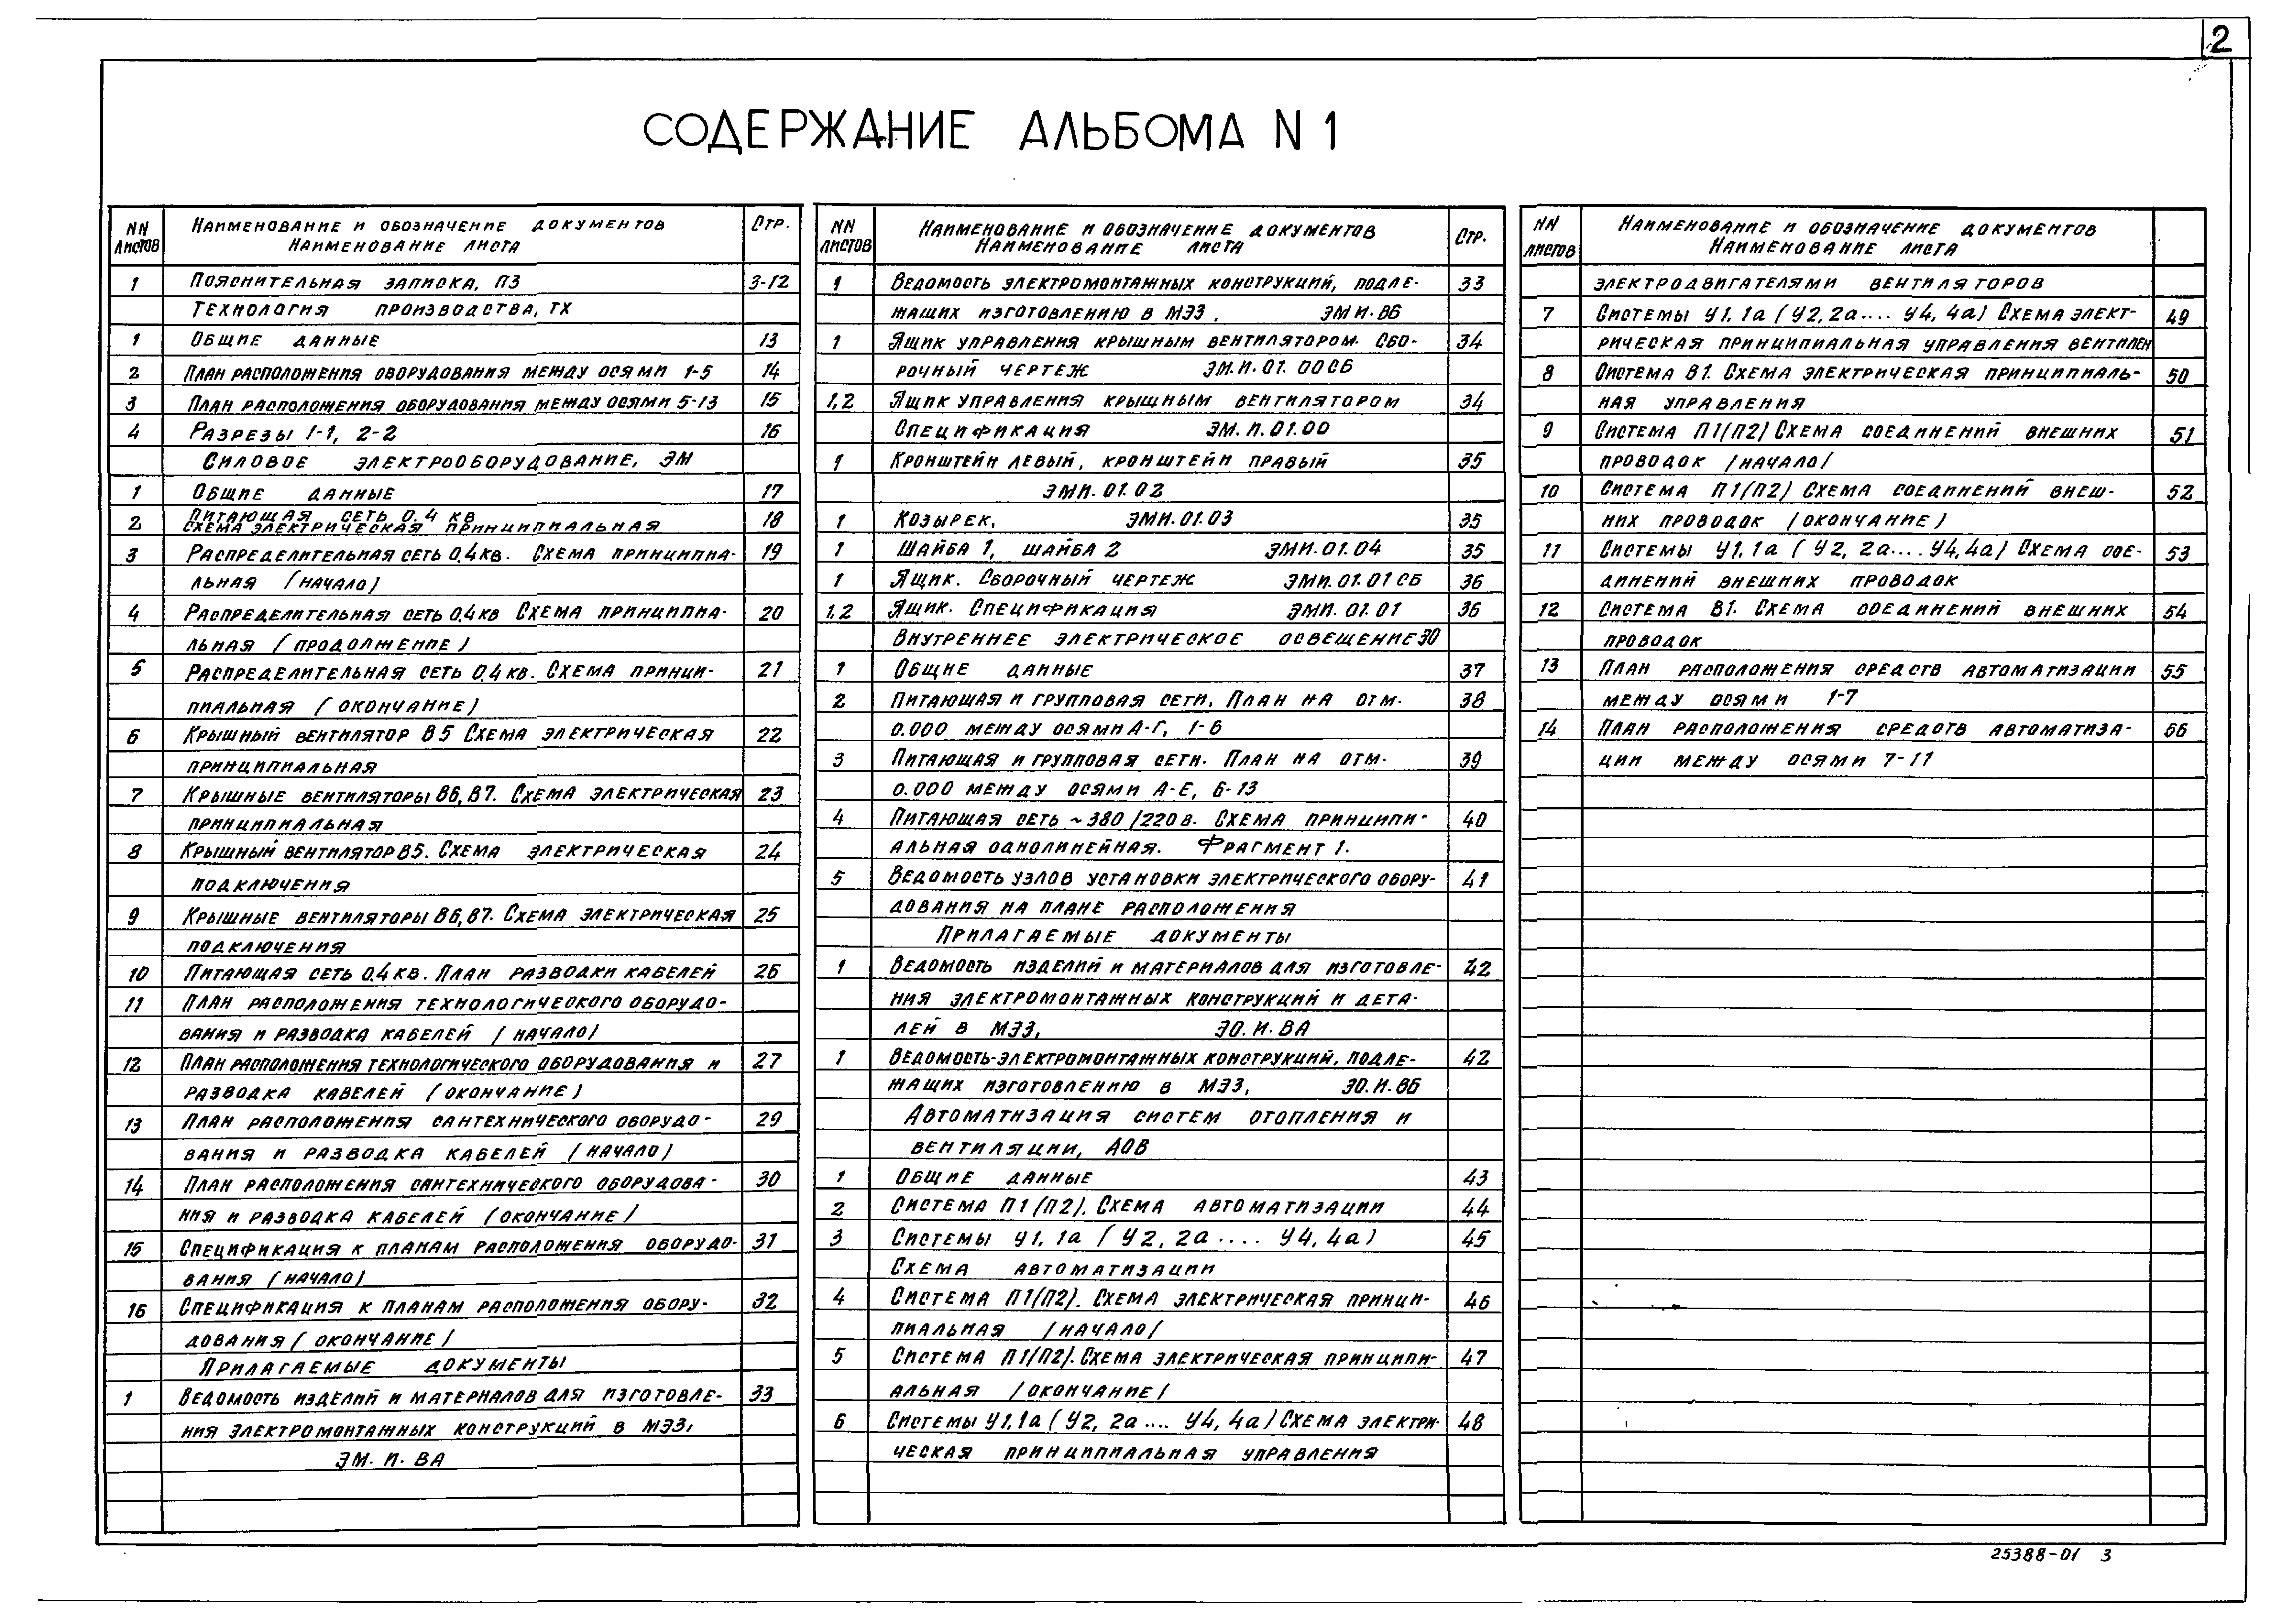 2
СОДЕРЖАНИЕ АЛЬБОМА N 1
NN листов Наименование и обозначение документов Стр.
Наименование листа
1 Пояснительная записка, ПЗ 3-12
Технология производства, ТХ
1 Общие данные 13
2 План расположения оборудования между осями 1-5 14
3 План расположения оборудования между осями 5-13 15
4 Разрезы 1-1, 2-2 16
Силовое электрооборудование, ЭМ
1 Общие данные 17
2 Питающая сеть 0.4 кв 18
схема электрическая принципиальная
3 Распределительная сеть 0.4 кв. Схема принципиа- 19
льная (начало)
4 Распределительная сеть 0.4 кв Схема принципиа- 20
льная (продолжение)
5 Распределительная сеть 0.4 кв. Схема принци- 21
пиальная (окончание)
6 Крышный вентилятор В5 Схема электрическая 22
принципиальная
7 Крышные вентиляторы В6, В7. Схема электрическая 23
принципиальная
8 Крышный вентилятор В5. Схема электрическая 24
подключения
9 Крышные вентиляторы В6, В7. Схема электрическая 25
подключения
10 Питающая сеть 0.4 кв. План разводки кабелей 26
11 План расположения технологического оборудо-
вания и разводка кабелей (начало)
12 План расположения технологического оборудования и 27
разводка кабелей (окончание)
13 План расположения сантехнического оборудо- 29
вания и разводка кабелей (начало)
14 План расположения сантехнического оборудова- 30
ния и разводка кабелей (окончание)
15 Спецификация к планам расположения оборудо- 31
вания (начало)
16 Спецификация к планам расположения обору- 32
дования (окончание)
Прилагаемые документы
1 Ведомость изделий и материалов для изготовле- 33
ния электромонтажных конструкций в МЭЗ,
ЭМ. И. ВА
NN листов Наименование и обозначение документов Стр.
Наименование листа
1 Ведомость электромонтажных конструкций, подле- 33
жащих изготовлению в МЭЗ, ЭМ И. В6
1 Ящик управления крышным вентилятором. Сбо- 34
рочный чертеж ЭМ.И.01.00 СБ
1,2 Ящик управления крышным вентилятором 34
Спецификация ЭМ.И.01.00
1 Кронштейн левый, кронштейн правый 35
ЭМИ.01.02
1 Козырек, ЭМИ.01.03 35
1 Шайба 1, шайба 2 ЭМИ.01.04 35
1 Ящик. Сборочный чертеж ЭМИ.01.01 СБ 36
1,2 Ящик. Спецификация ЭМИ.01.01 36
Внутреннее электрическое освещение ЭО
1 Общие данные 37
2 Питающая и групповая сети. План на отм. 38
0.000 между осями А-Г, 1-6
3 Питающая и групповая сети. План на отм. 39
0.000 между осями А-Е, 6-13
4 Питающая сеть ~380/220 в. Схема принципи- 40
альная однолинейная. Фрагмент 1.
5 Ведомость узлов установки электрического обору- 41
дования на плане расположения
Прилагаемые документы
1 Ведомость изделий и материалов для изготовле- 42
ния электромонтажных конструкций и дета-
лей в МЭЗ, ЭО.И.ВА
1 Ведомость электромонтажных конструкций, подле- 42
жащих изготовлению в МЭЗ, ЭО.И.В6
Автоматизация систем отопления и
вентиляции, АОВ
1 Общие данные 43
2 Система П1(П2). Схема автоматизации 44
3 Системы У1, 1а (У2, 2а.... У4, 4а) 45
Схема автоматизации
4 Система П1(П2). Схема электрическая принци- 46
пиальная /начало/
5 Система П1(П2). Схема электрическая принципи- 47
альная /окончание/
6 Системы У1, 1а (У2, 2а.... У4, 4а) Схема электри- 48
ческая принципиальная управления
NN листов Наименование и обозначение документов
Наименование листа
электродвигателями вентиляторов
7 Системы У1, 1а (У2, 2а.... У4, 4а) Схема элект- 49
рическая принципиальная управления вентилен
8 Система В1. Схема электрическая принципиаль- 50
ная управления
9 Система П1(П2) Схема соединений внешних 51
проводок /начало/
10 Система П1(П2) Схема соединений внеш- 52
них проводок (окончание)
11 Системы У1, 1а (У2, 2а.... У4, 4а) Схема сое- 53
динений внешних проводок
12 Система В1. Схема соединений внешних 54
проводок
13 План расположения средств автоматизации 55
между осями 1-7
14 План расположения средств автоматиза- 56
ции между осями 7-11
25388-01 3